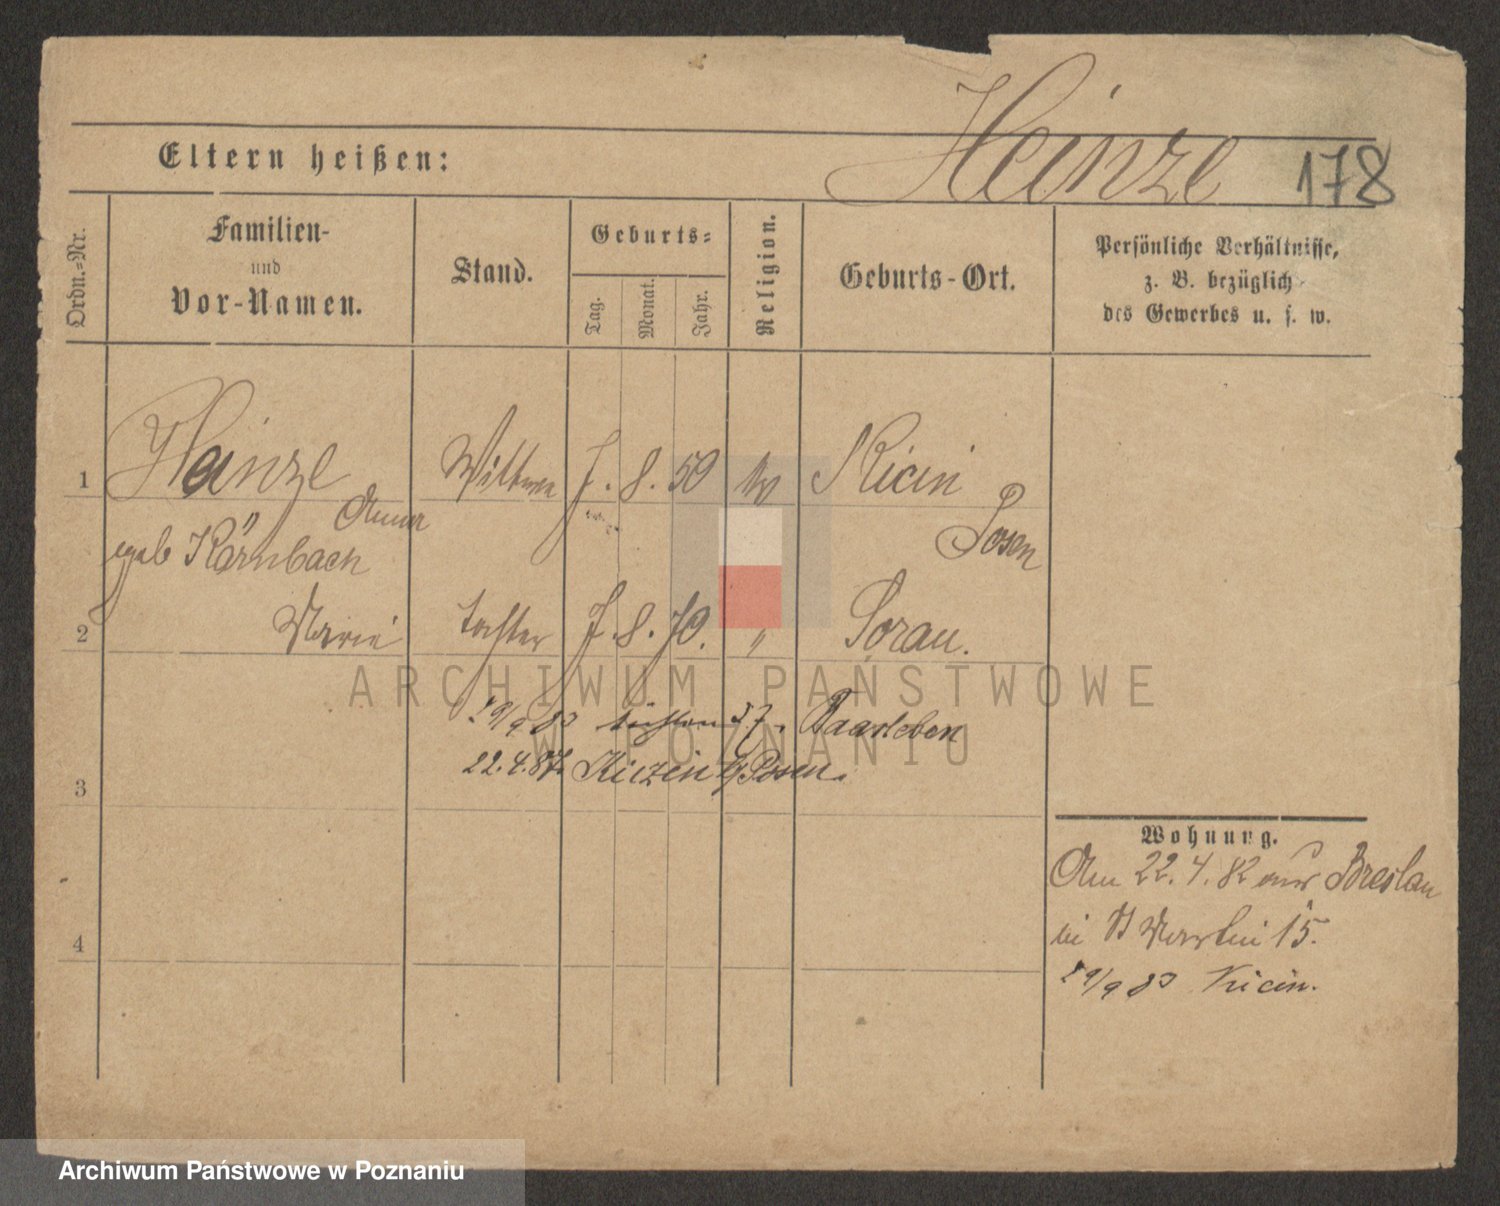 Heinze
178
Eltern heißen:
Ordn.=Nr.
Familien-
und
Vor-Namen.
Stand.
Geburts=
Tag.
Monat.
Jahr.
Religion.
Geburts-Ort.
Persönliche Verhältnisse,
z. B. bezüglich
des Gewerbes u. s. w.
1 Heinze Wittwe 7. 8. 50 Kicin
Anna Posen
geb Körnbach
2 Marie Tochter 7. 8. 70. " Sorau.
29/9 83
22.4.87. Kiczin b/Posen.
3
4
Wohnung.
Am 22.4.82 aus Breslau
St Martin 15.
29/9 83 Kicin.
ARCHIWUM PAŃSTWOWE
W POZNANIU
Archiwum Państwowe w Poznaniu